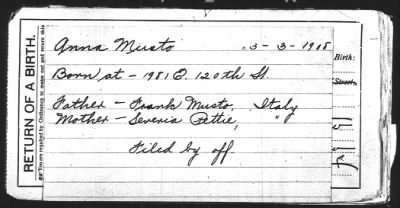 RETURN OF A BIRTH.
Anna Musto 3-3-1915
Birth:
Born at - 1981 E. 120th St.
Street,
Father - Frank Musto, Italy
Mother - Severia Pettie, "
Filed by off.